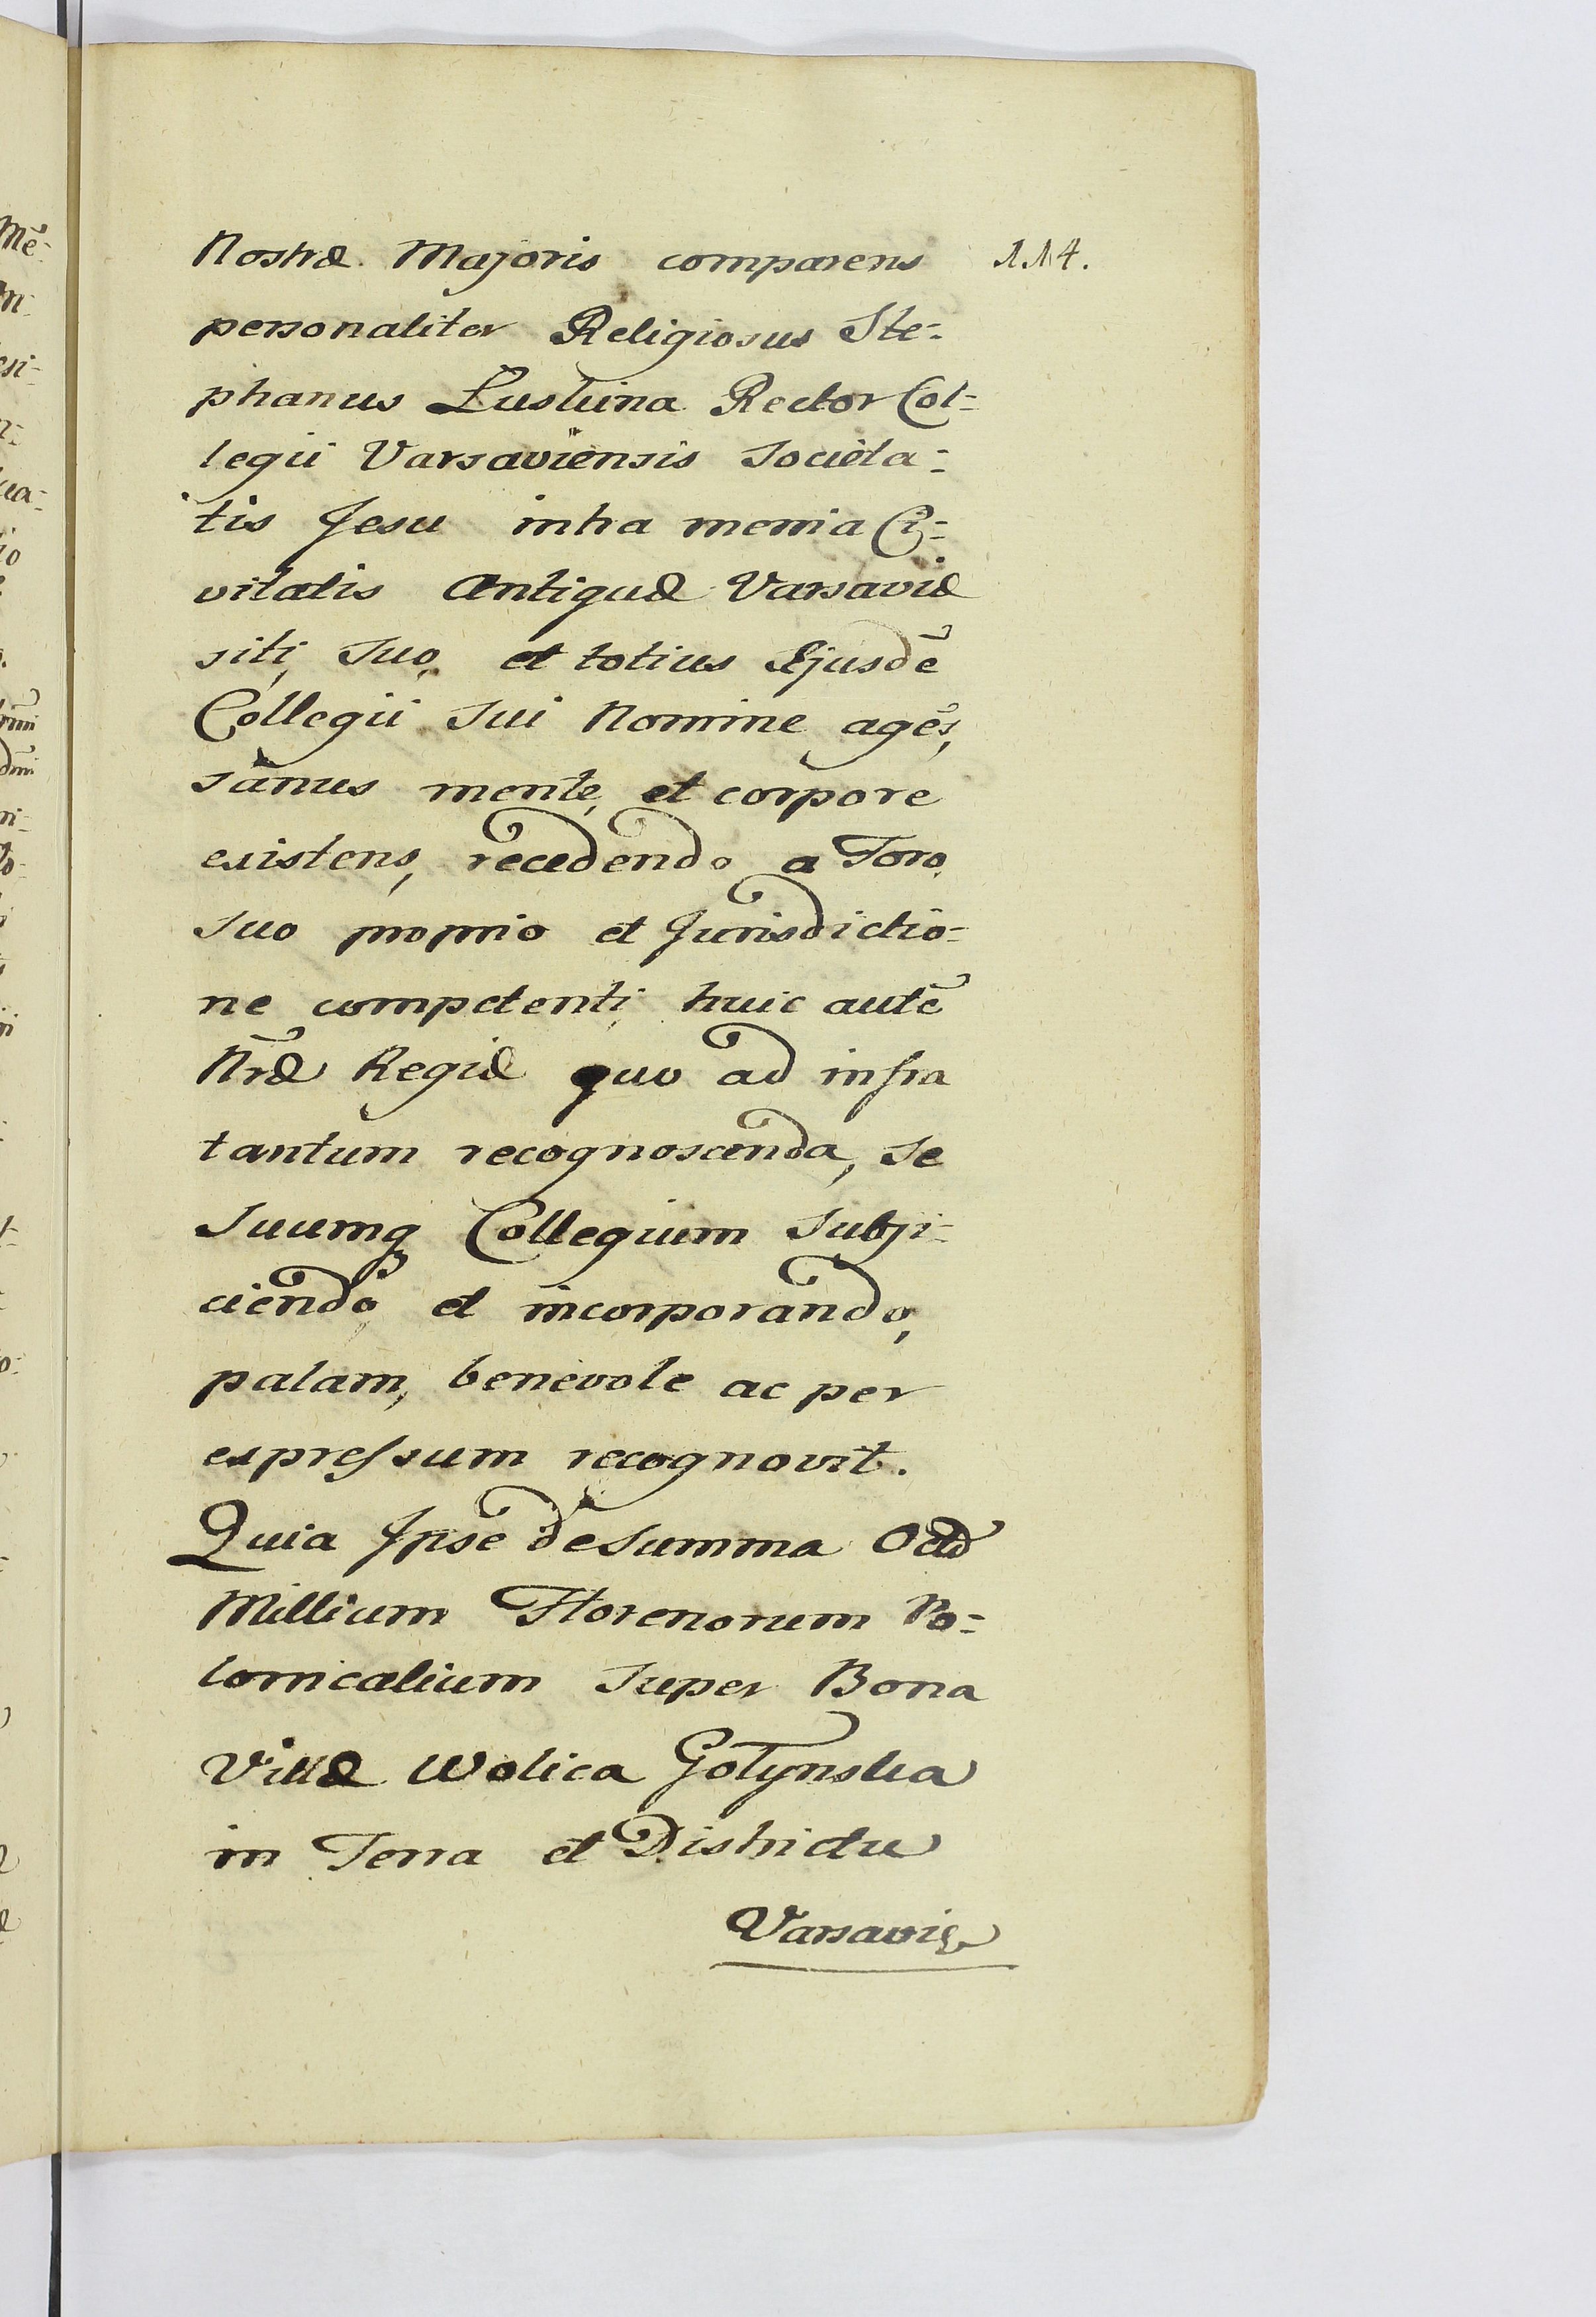 Nostræ Majoris comparens 114.
personaliter Religiosus Ste=
phanus Łuskina Rector Col=
legii Varsaviensis Societa=
tis Jesu intra menia Ci=
vitatis Antiquæ Varsaviæ
siti, suo, et totius Ejusdē
Collegii sui Nomine agēs,
sanus mente, et corpore
existens, recedendo a Foro
suo proprio et Jurisdictio=
ne competenti, huic autē
Nræ Regiæ quo ad infra
tantum recognoscenda, se
suumq Collegium subji=
ciendo et incorporando,
palam, benevole ac per
expressum recognovit.
Quia Ipse de summa Octo
Millium Florenorum Po=
lonicalium super Bona
Villæ Wolica Gołynska
in Terra et Districtu
Varsaviæ